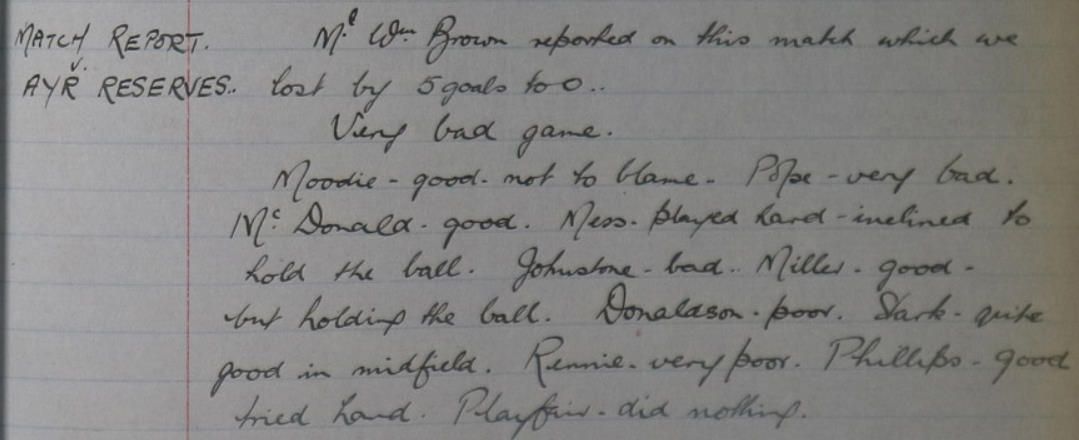 MATCH REPORT. Mr Wm Brown reported on this match which we
v.
AYR RESERVES.. lost by 5 goals to 0..
Very bad game.
Moodie - good - not to blame - Pope - very bad.
Mc Donald - good. Mess - played hard - inclined to
hold the ball. Johnstone - bad.. Miller - good -
but holding the ball. Donaldson - poor. Sark - quite
good in midfield. Rennie - very poor. Phillips - good
tried hard. Playfair - did nothing.